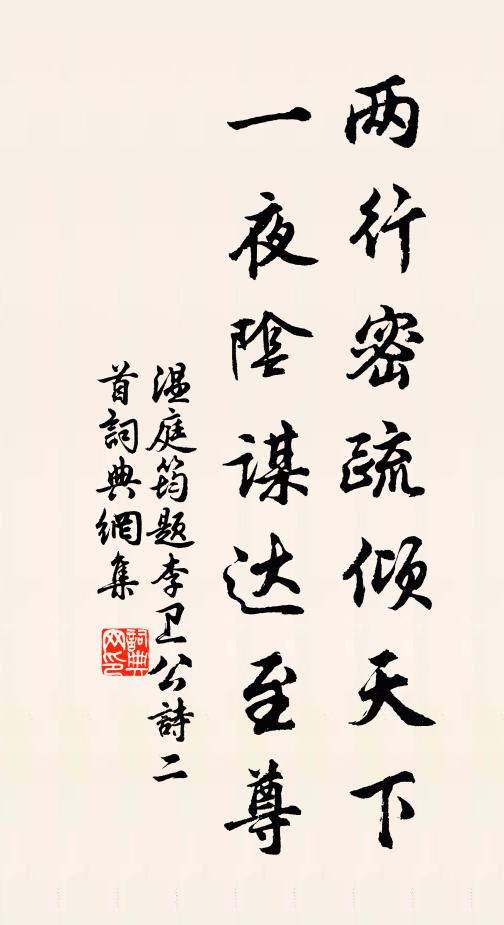 两行密疏倾天下
一夜陰謀达至尊
温庭筠题李卫公詩二
首詞典網集
詞典
网印